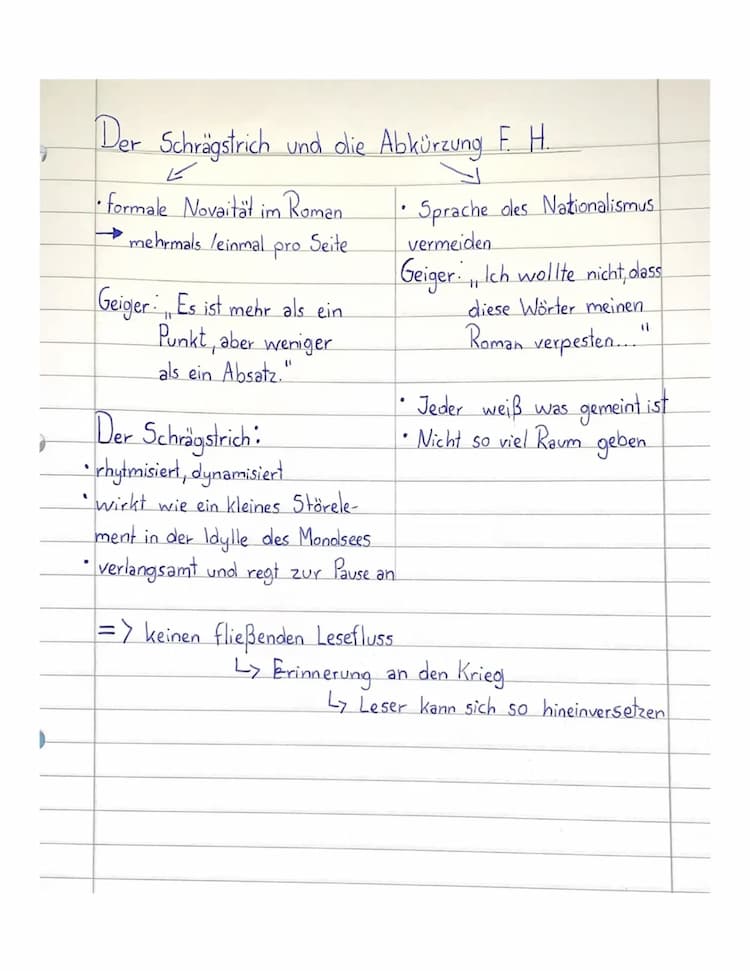 Der Schrägstrich und die Abkürzung F. H.
• formale Novaität im Roman
→ mehrmals /einmal pro Seite
Geiger: „Es ist mehr als ein
Punkt, aber weniger
als ein Absatz."
Der Schrägstrich:
• rhytmisiert, dynamisiert
• wirkt wie ein kleines Störele-
ment in der Idylle des Mondsees
• verlangsamt und regt zur Pause an
• Sprache des Nationalismus
vermeiden
Geiger: „Ich wollte nicht, dass
diese Wörter meinen
Roman verpesten..."
• Jeder weiß was gemeint ist
• Nicht so viel Raum geben
=> keinen fließenden Lesefluss
↳ Erinnerung an den Krieg
↳ Leser kann sich so hineinversetzen